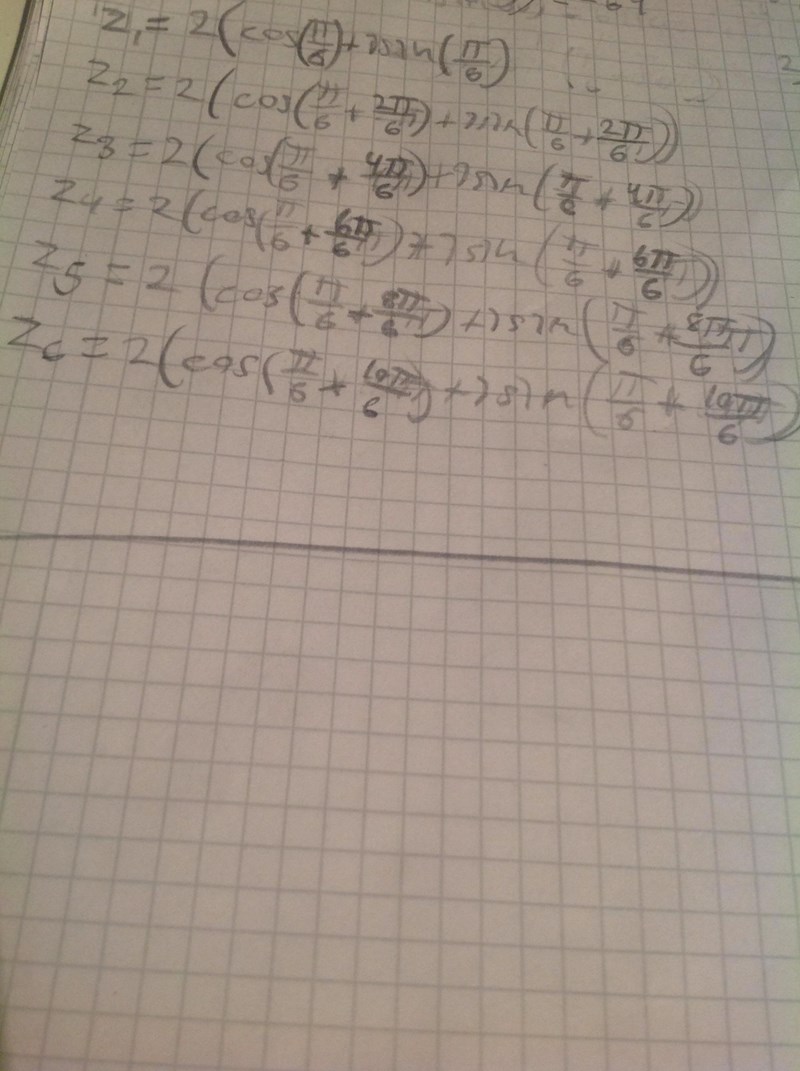 = -64
z₁ = 2(cos(π/6) + i sin(π/6))
z₂ = 2(cos(π/6 + 2π/6) + i sin(π/6 + 2π/6))
z₃ = 2(cos(π/6 + 4π/6) + i sin(π/6 + 4π/6))
z₄ = 2(cos(π/6 + 6π/6) + i sin(π/6 + 6π/6))
z₅ = 2(cos(π/6 + 8π/6) + i sin(π/6 + 8π/6))
z₆ = 2(cos(π/6 + 10π/6) + i sin(π/6 + 10π/6))